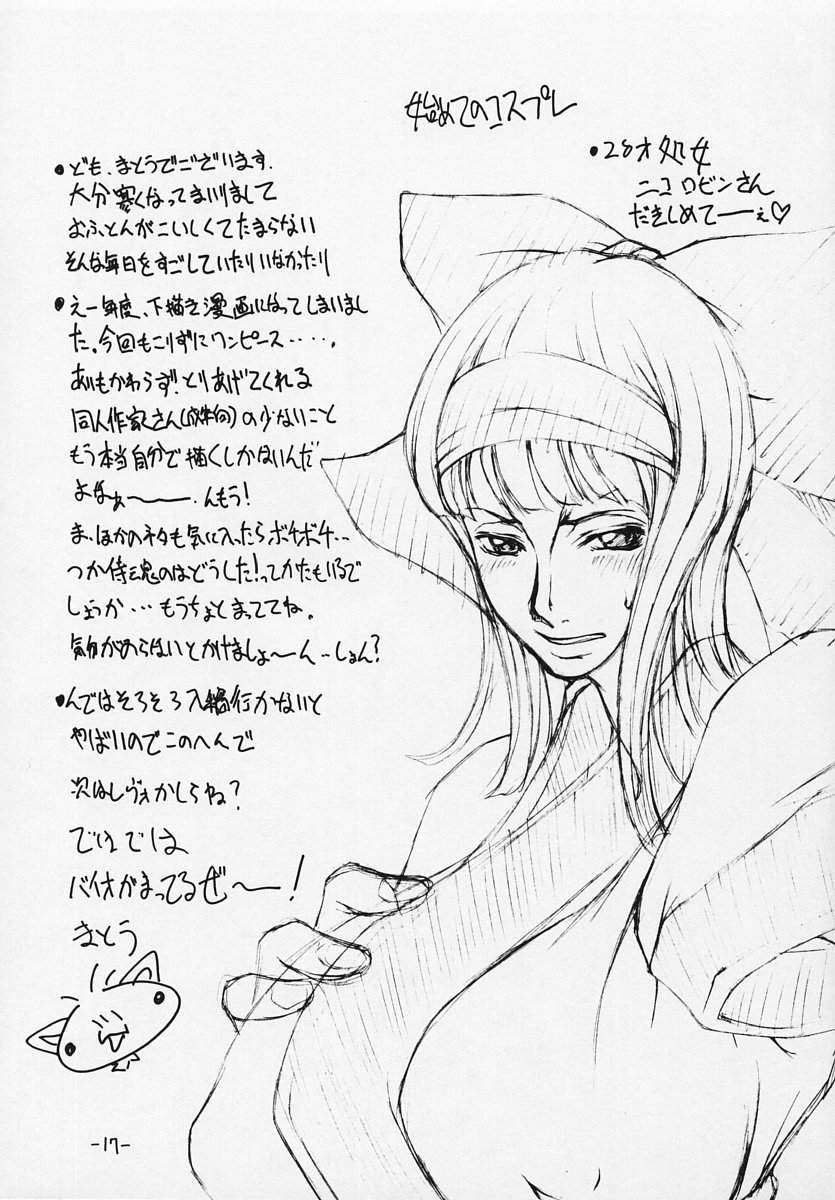 始めてのコスプレ
•28才処女
ニコロビンさん
だきしめてーーぇ♡
•ども、まとうでございます.
大分寒くなってまいりまして
おふとんがこいしくてたまらない
そんな毎日をすごしていたりいなかったり
•えー毎度、下描き漫画になってしまいまし
た。今回もこりずにワンピース‥‥.
あいもかわらず!とりあげてくれる
同人作家さん(成年向)の少ないこと
もう本当自分で描くしかないんだ
よなぁ〜〜.んもう!
ま、ほかのネタも気に入ったらボチボチ‥
つか侍魂のはどうした!ってかたもいるで
しょうか…もうちょとまっててね。
気分がのらないとかけましょ〜ん-しょん?
•んではそろそろ入稿行かないと
やばいのでこのへんで
次はレヴォかしらね?
でわでは
バイオがまってるぜ〜!
まとう
-17-